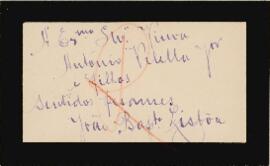 A Exma Snrª Viuva
António Vilella Jor
e Filhos
Sentidos pezames
João Bapt. Lisbôa